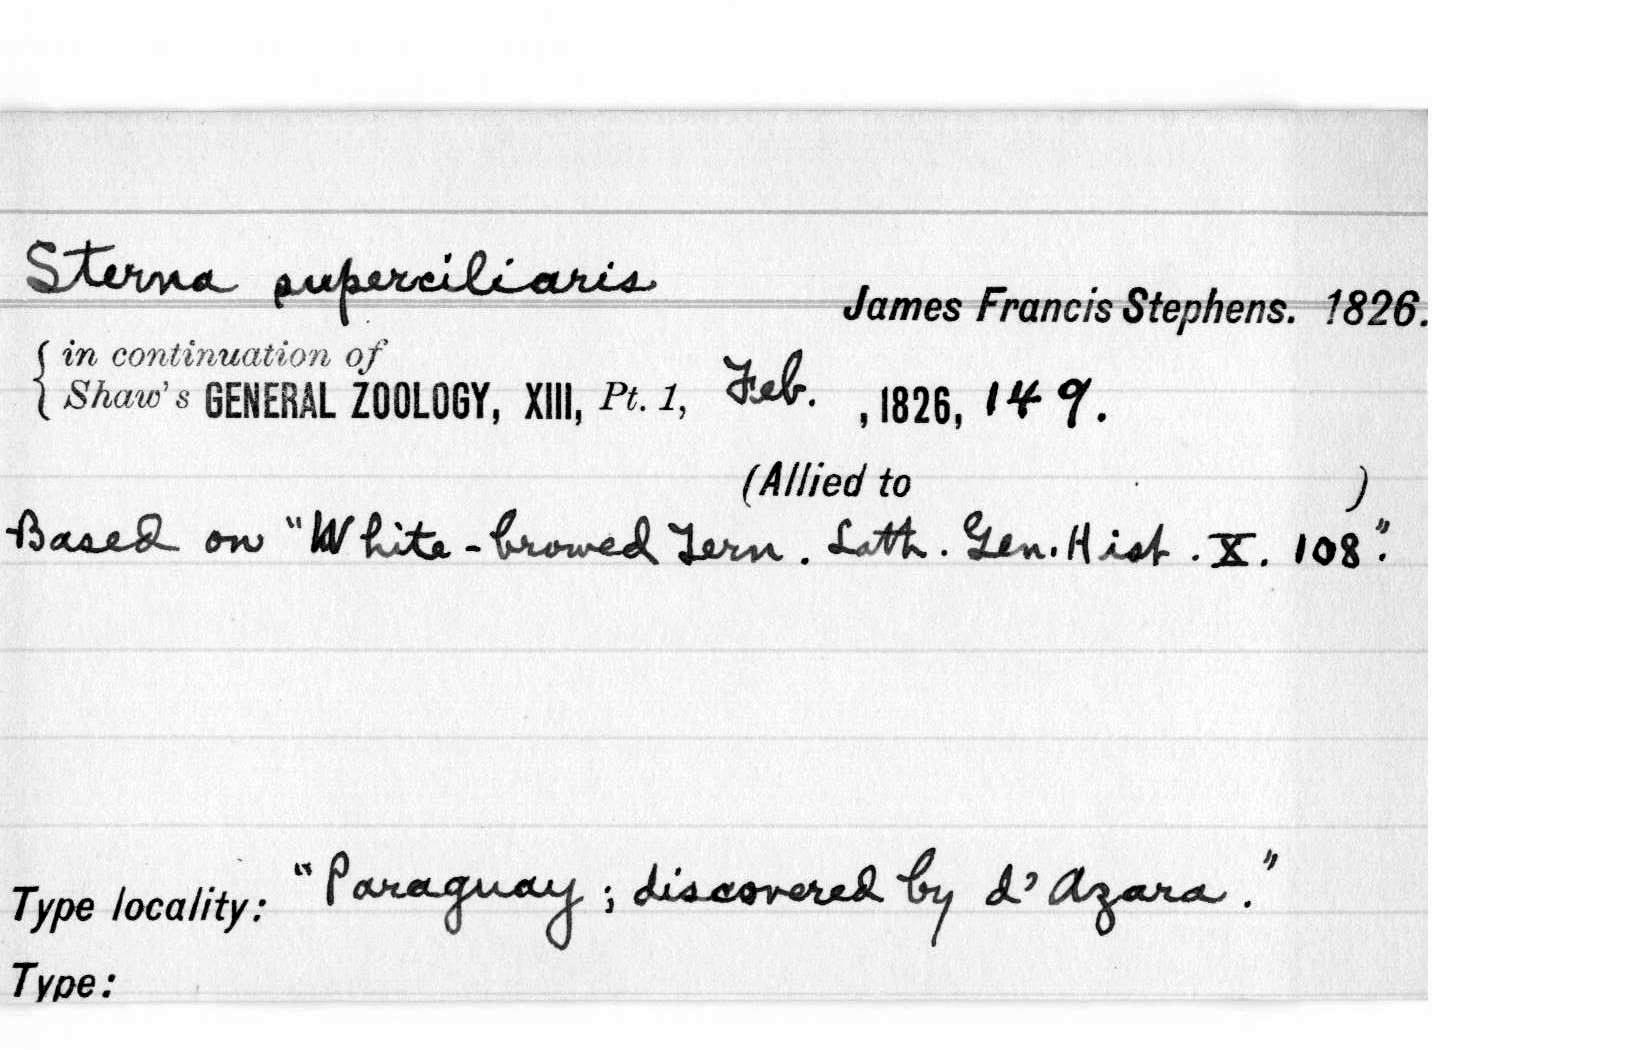 Sterna superciliaris
James Francis Stephens. 1826.
{ in continuation of
Shaw's GENERAL ZOOLOGY, XIII, Pt. 1, Feb. , 1826, 149.
(Allied to )
Based on "White-browed Tern. Lath. Gen. Hist. X. 108".
Type locality: "Paraguay; discovered by d'Azara."
Type: